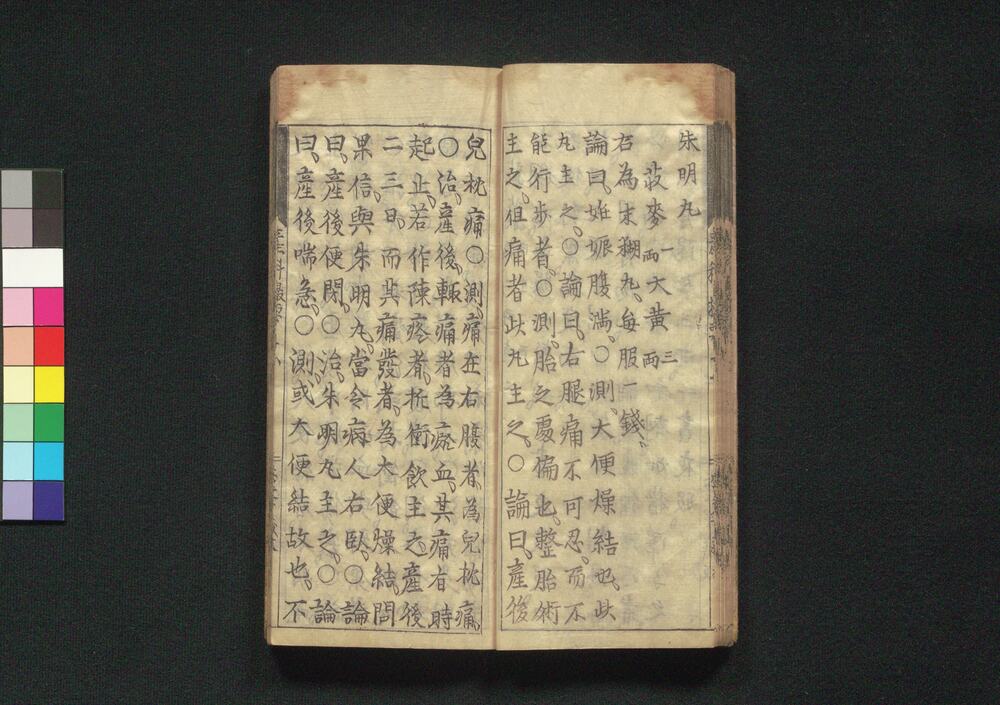 朱明丸
蕎麥一兩大黄三兩
右為末糊丸毎服一錢
論曰妊娠腹満○測大便燥結也此
丸主之○論曰右腿痛不可忍而不
能行歩者○測胎之處偏也整胎術
主之但痛者此丸主之○論曰産後
兒枕痛○測痛在右腹者為兒枕痛
○治産後輙痛者為瘀血其痛有時
起止若作陳疼者抵衝飲主之産後
二三日而其痛發者為大便燥結問
果信與朱明丸當令病人右臥○論
曰産後便閉○治朱明丸主之○論
曰産後喘急○測或大便結故也不